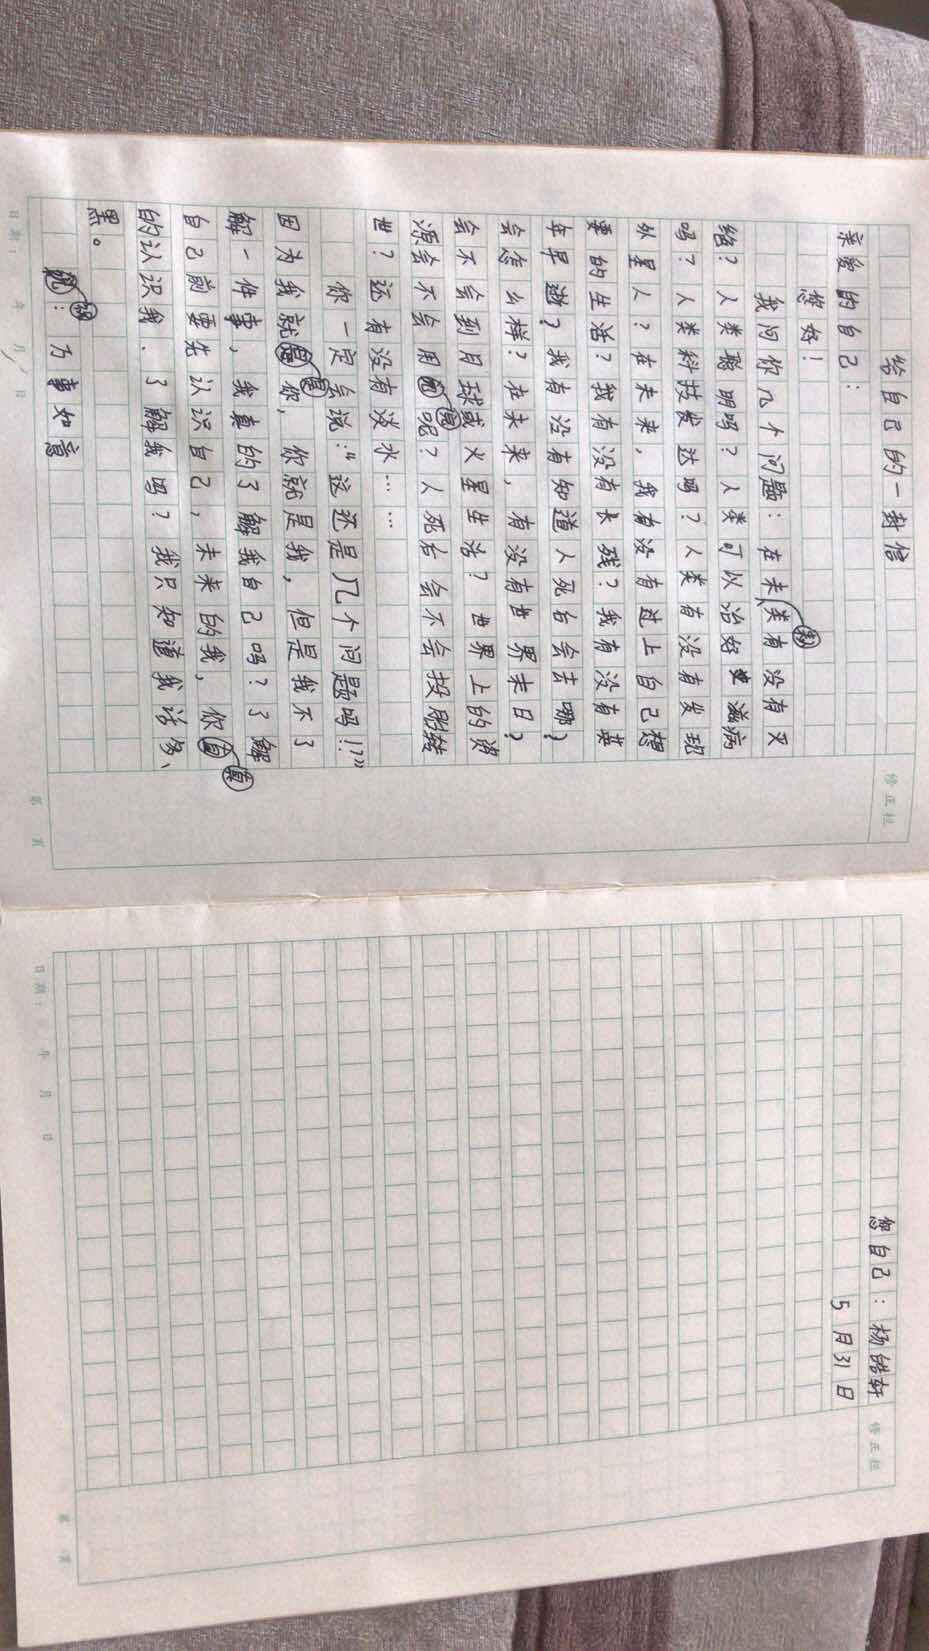 给自己的一封信
亲爱的自己：
您好！
我问你几个问题：在未来人类有没有灭
绝？人类聪明吗？人类可以治好艾滋病
吗？人类科技发达吗？人类有没有发现
外星人？在未来，我有没有过上自己想
要的生活？我有没有长残？我有没有英
年早逝？我有没有知道人死后会去哪？
会怎么样？在未来，有没有世界末日？
会不会到月球或火星生活？世界上的资
源会不会用完呢？人死后会不会投胎转
世？还有没有淡水……
你一定会说：“这还是几个问题吗！？”
因为我就是你，你就是我，但是我不了
解一件事，我真的了解我自己吗？了解
自己前要先认识自己，未来的我，你真
的认识我、了解我吗？我只知道我话多、
黑。
祝：万事如意
日期： 年 月 日
第 页
修正栏
您自己：杨皓轩
5月31日
修正栏
日期： 年 月 日
第 页